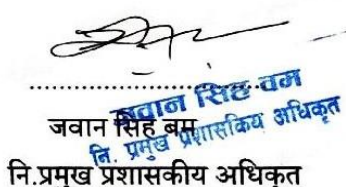 ....................................
जवान सिंह बम
नि. प्रमुख प्रशासकिय अधिकृत
जवान सिंह बम
नि.प्रमुख प्रशासकीय अधिकृत